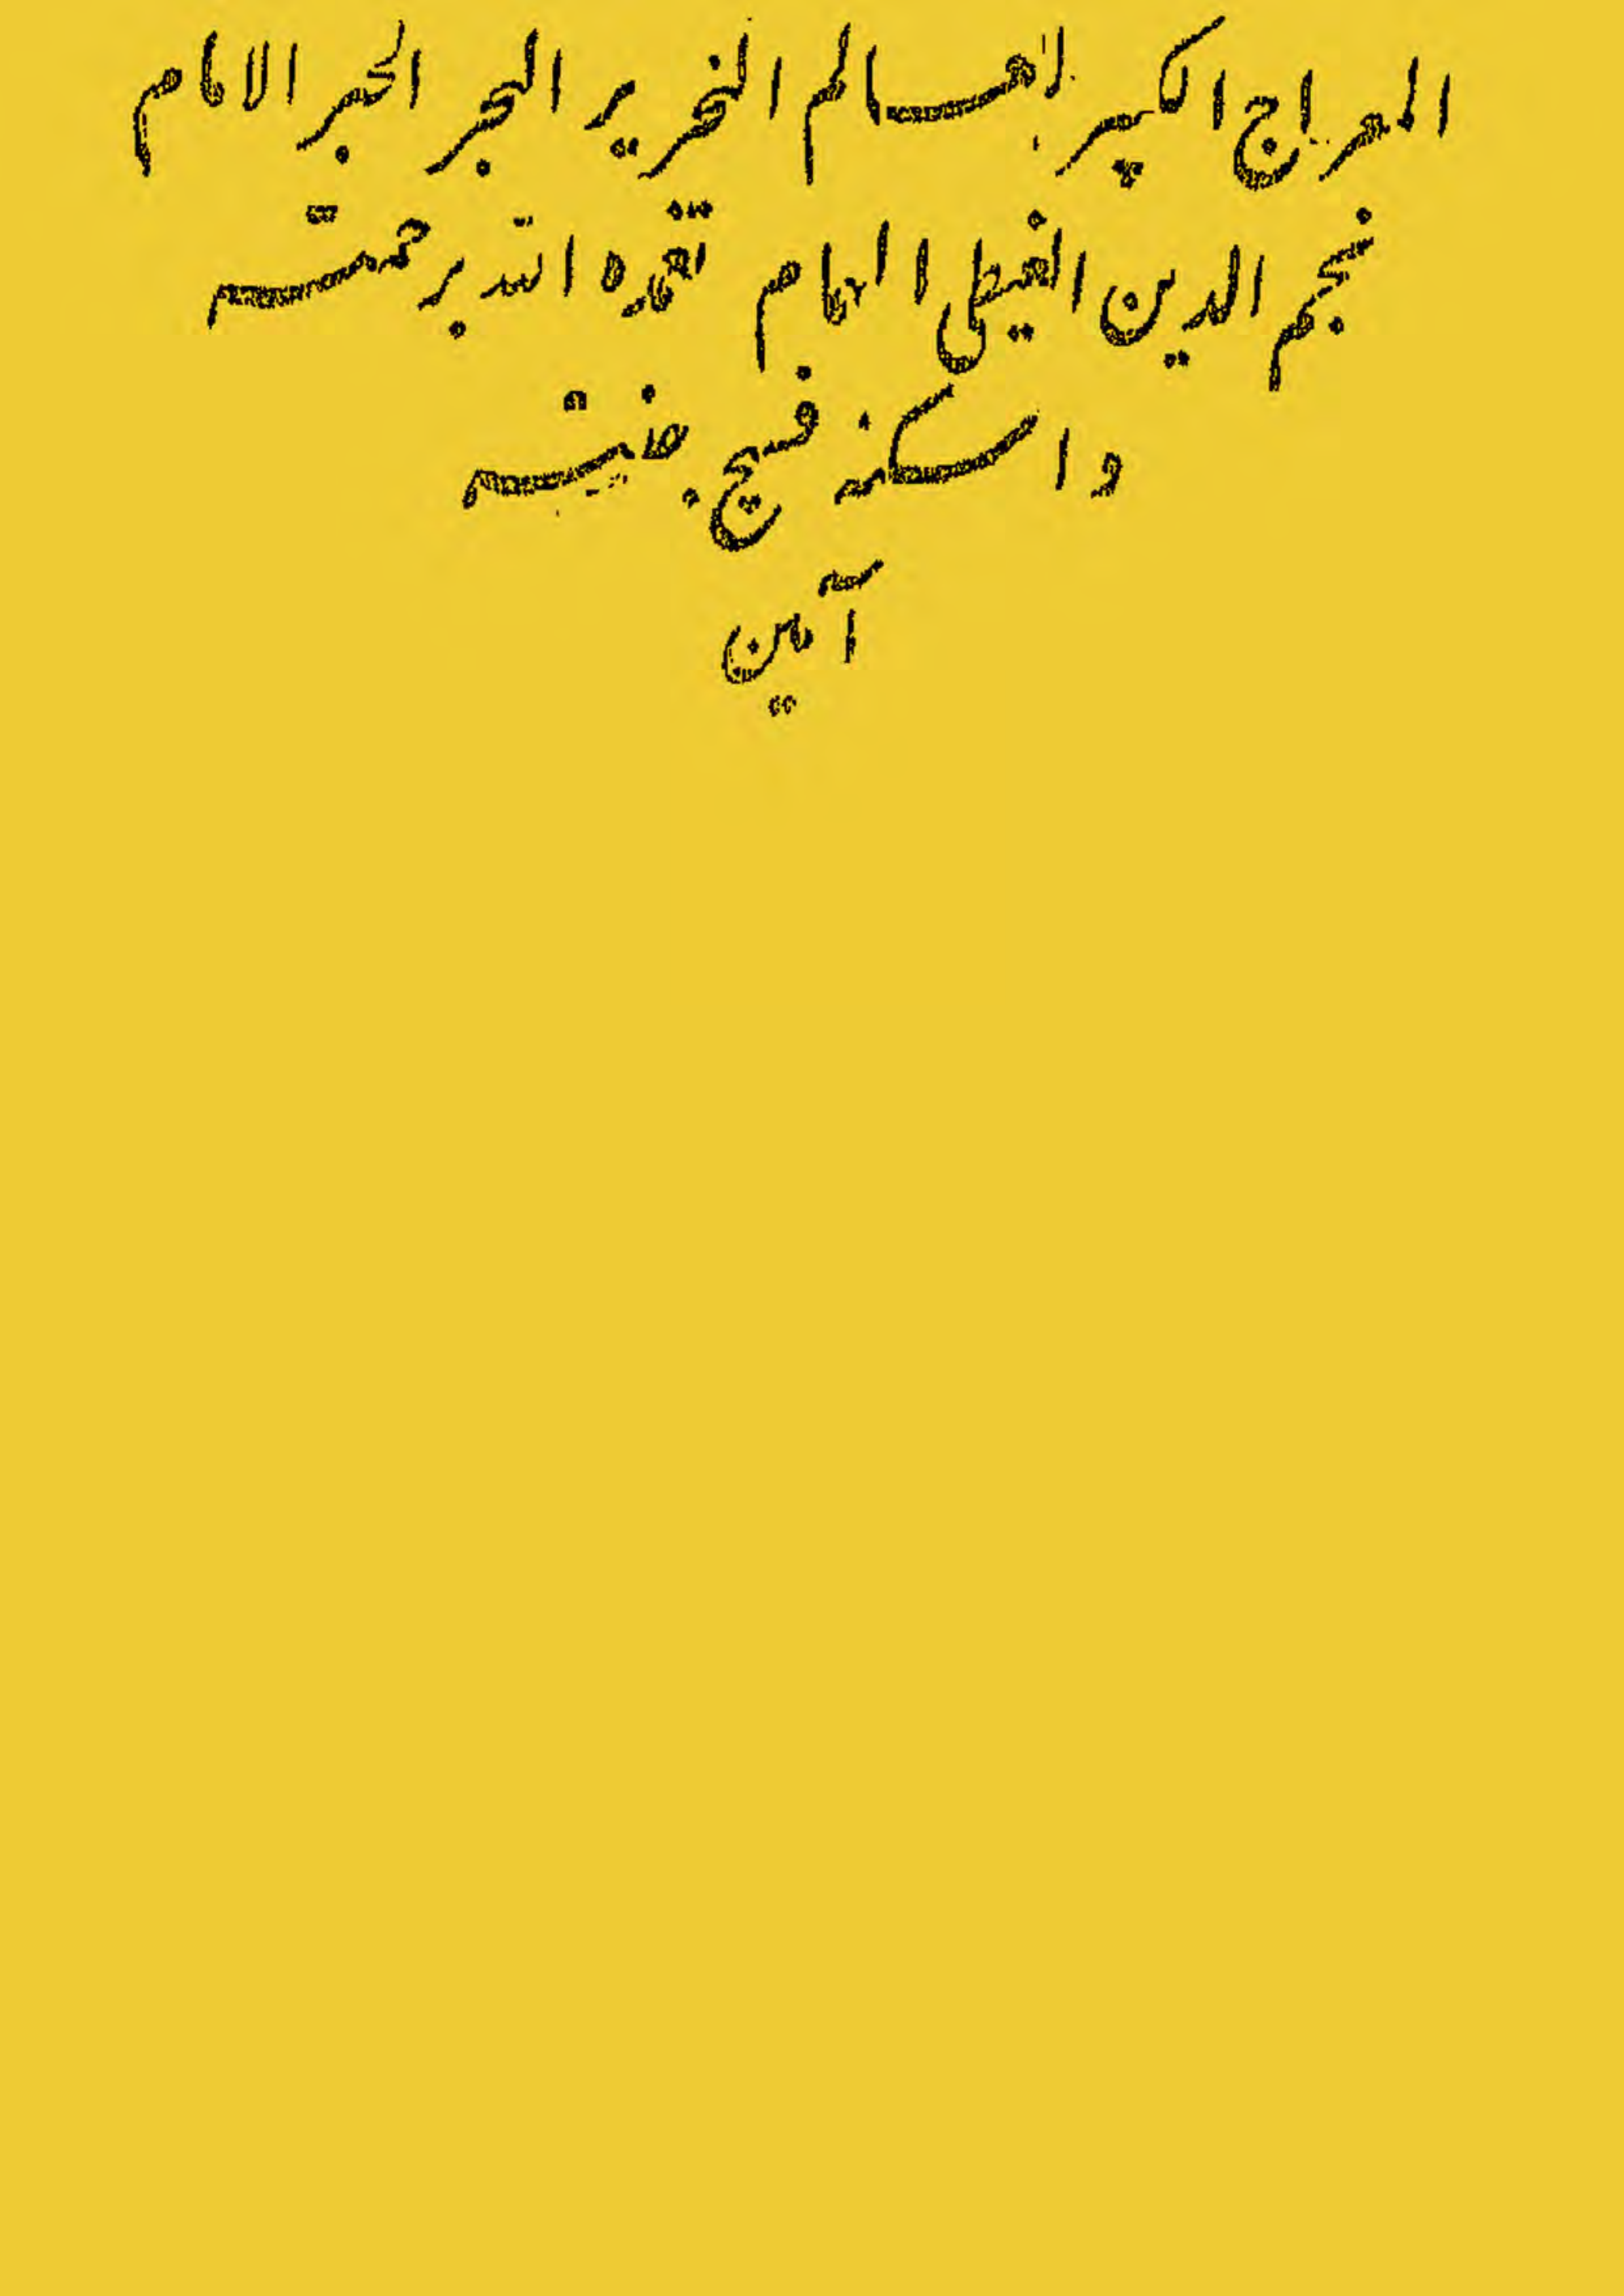 المعراج الكبير للعالم النحرير البحر الحبر الامام
نجم الدين الغيطى الهمام تغمده الله برحمته
واسكنه فسيح جنته
آمين